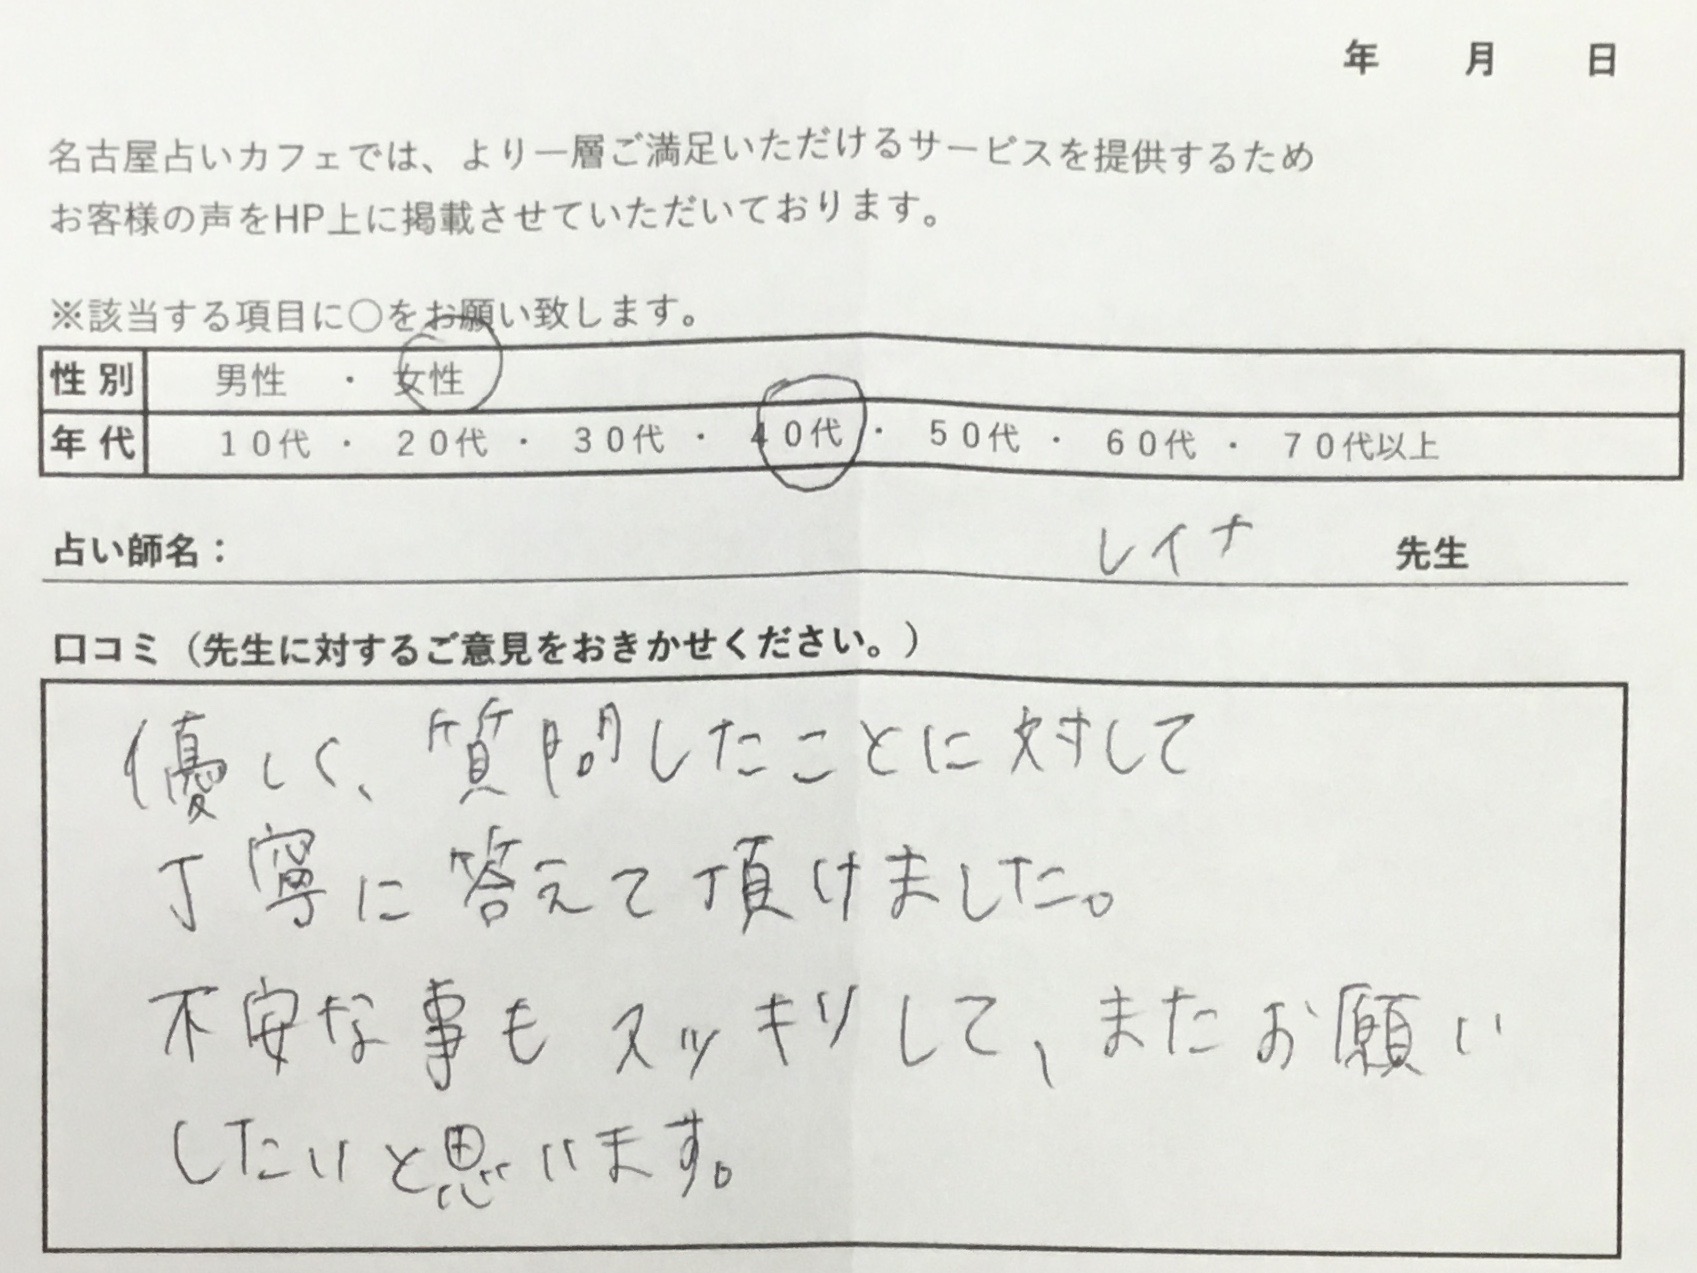 年 月 日
名古屋占いカフェでは、より一層ご満足いただけるサービスを提供するため
お客様の声をHP上に掲載させていただいております。
※該当する項目に○をお願い致します。
性別 男性 ・ 女性
年代 10代 ・ 20代 ・ 30代 ・ 40代 ・ 50代 ・ 60代 ・ 70代以上
占い師名： レイナ 先生
口コミ（先生に対するご意見をおきかせください。）
優しく、質問したことに対して
丁寧に答えて頂けました。
不安な事もスッキリして、またお願い
したいと思います。